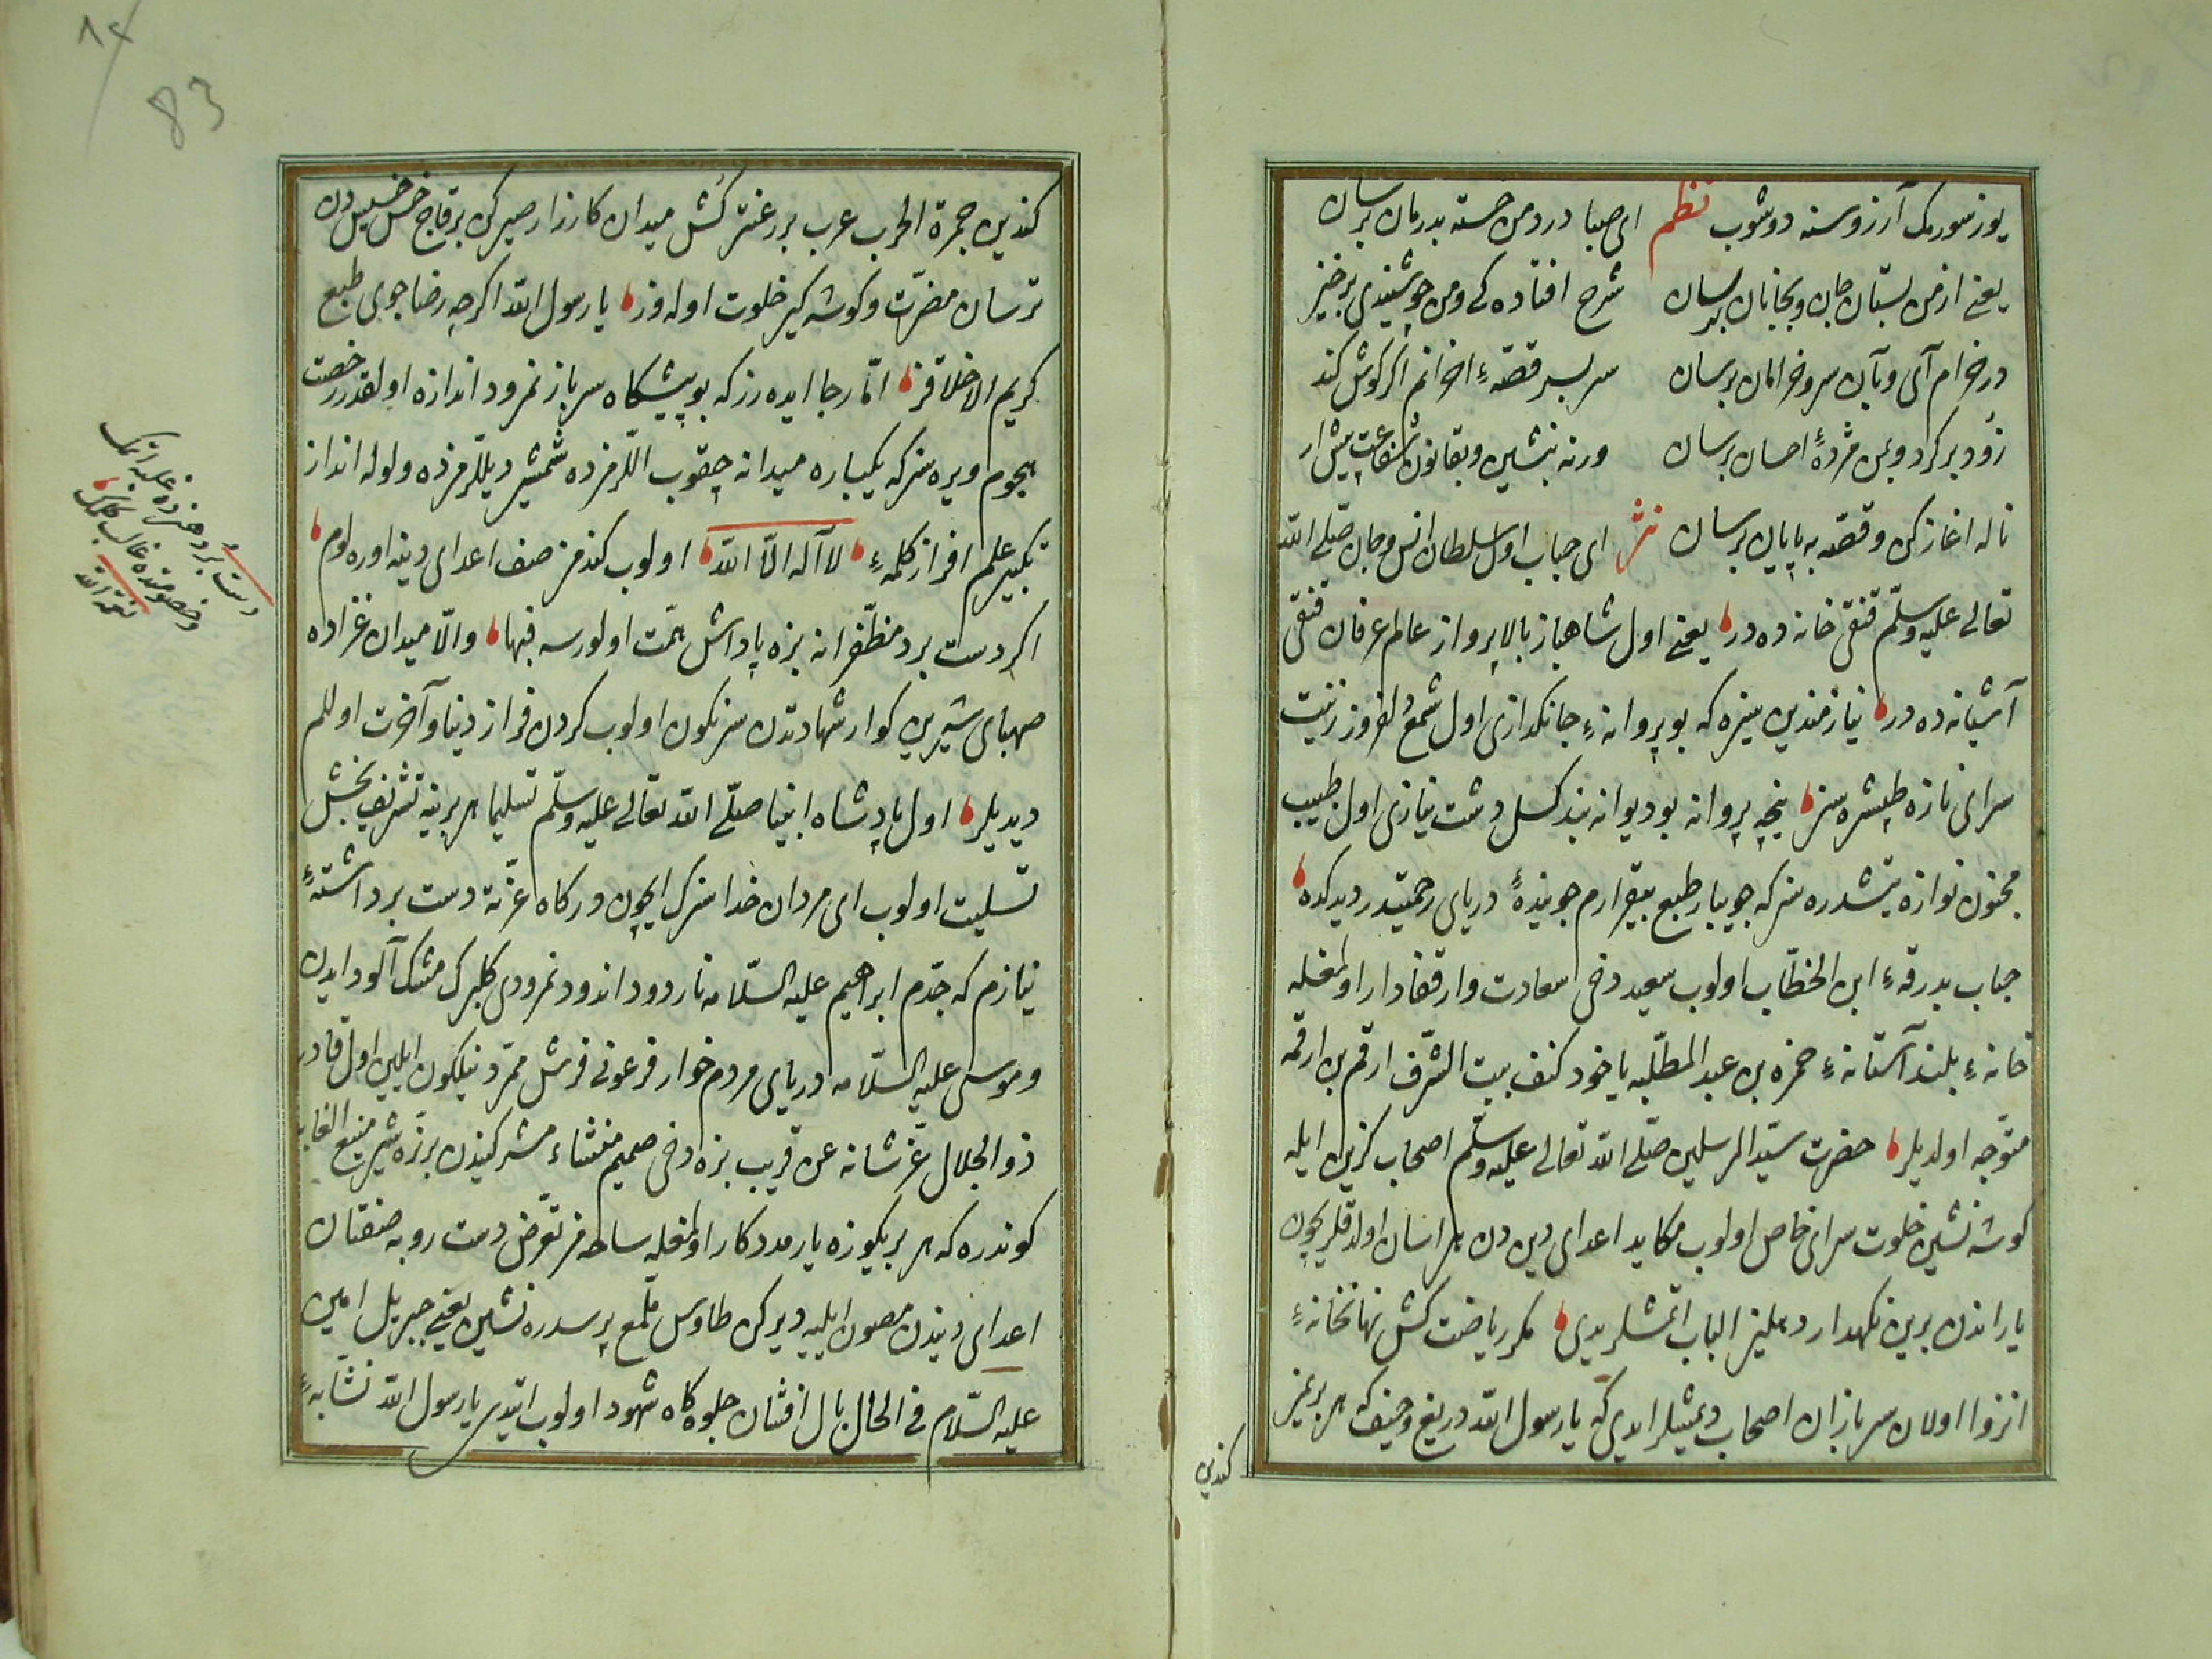 یوز سورمک آرزوسنه دوشوب نظم ای صبا درد من خسته بدرمان برسان
یعنی از من بستان جان و بجانان برسان شرح افتاده کی و من چو شنیدی برخیز
در خرام آی و بآن سرو خرامان برسان سر بسر قصّهٔ اخوانم اگر گوش کند
زود برگرد و بمن مژدهٔ احسان برسان ورنه بنشین و بقانون شفاعت پیش آر
ناله اغاز کن و قصّه به پایان برسان نثر ای حباب اول سلطان انس و جان صلّی الله
تعالی علیه وسلّم قنقی خانه ده در یعنی اول شاهباز بالا پرواز عالم عرفان قنقی
آشیانه ده در نیازمندین سزه که بو پروانهٔ جانکدازی اول شمع دلفروز زینت
سرای نازه طپشره سز نیجه پروانه بو دیوانه بند کسل دشت نیازی اول طبیب
مجنون نوازه یتشدره سز که جویبار طبع بیقرارم جویندهٔ دریای رحمتدر دیدکده
جناب بدرقهٔ ابن الخطّاب اولوب سعید دخی سعادت وار قفادار اولمغله
خانهٔ بلند آستانهٔ حمزه بن عبد المطلّبه یاخود کنف بیت الشّرف ارقم بن ارقمه
متوّجه اولدیلر حضرت سیّد المرسلین صلّی الله تعالی علیه وسلّم اصحاب گزین ایله
کوشه نشین خلوت سرای خاص اولوب مکاید اعدای دین دن هراسان اولدقلریچون
یاراندن برین نکهدار دهلیز الباب اتمشلریدی مکر ریاضت کش نهانخانهٔ
انزوا اولان سربازان اصحاب دیمشلر ایدی که یا رسول الله دریغ و حیف که هر بریمز
کندین
کندین جمرة الحرب عرب بر عنتر کش میدان کارزار صیرکن بر قاچ خس خسیس دن
ترسان مضرّت و کوشه کیر خلوت اوله وز یا رسول الله اکرچه رضا جوی طبع
کریم الاخلاقز امّا رجا ایده رز که بو پیشکاه سرباز نمرود اندازه اولقدر رخصت
هجوم ویره سز که یکباره میدانه چقوب اللرمزده شمشیر دیللرمزده ولوله انداز
تکبیر علم افراز کلمهٔ لا اله الّا الله اولوب کندمز صف اعدای دینه اوره لوم
اکر دست برد مظفّرانه بزه پاداش همّت اولورسه فبها والّا میدان غزاده
صهبای شیرین کوار شهادتدن سرنکون اولوب کردن فراز دنیا و آخرت اوللم
دیدیلر اول پادشاه انبیا صلّی الله تعالی علیه وسلّم تسلیما هر برینه تشریف بخش
تسلیت اولوب ای مردان خدا سزک ایچون درکاه عزّته دست برداشتهٔ
نیازم که جدّم ابراهیم علیه السّلامه نار دود اندود نمرودی کلبرک مشک آلود ایدن
و موسی علیه السّلامه دریای مردم خوار فرعونی فرش ممرّد نیلکون ایلین اول قادر
ذو الجلال عزّ شانه عن قریب بزه دخی صمیم منشاء مشرکیندن بر نرّه شیر منیع الغابه
کوندره که هر بریکوزه یار مددکار اولمغله ساحه مز تعرّض دست روبه صفتان
اعدای دیندن مصون ایلیه دیرکن طاوس ملّمع پر سدره نشین یعنی جبریل امین
علیه السّلام فی الحال بال افشان جلوه کاه شهود اولوب ایتدی یا رسول الله نشابهٔ
دست برد هنرده غلبه ایتمک
و خصومتده غالب کلمک
نعمة الله
83